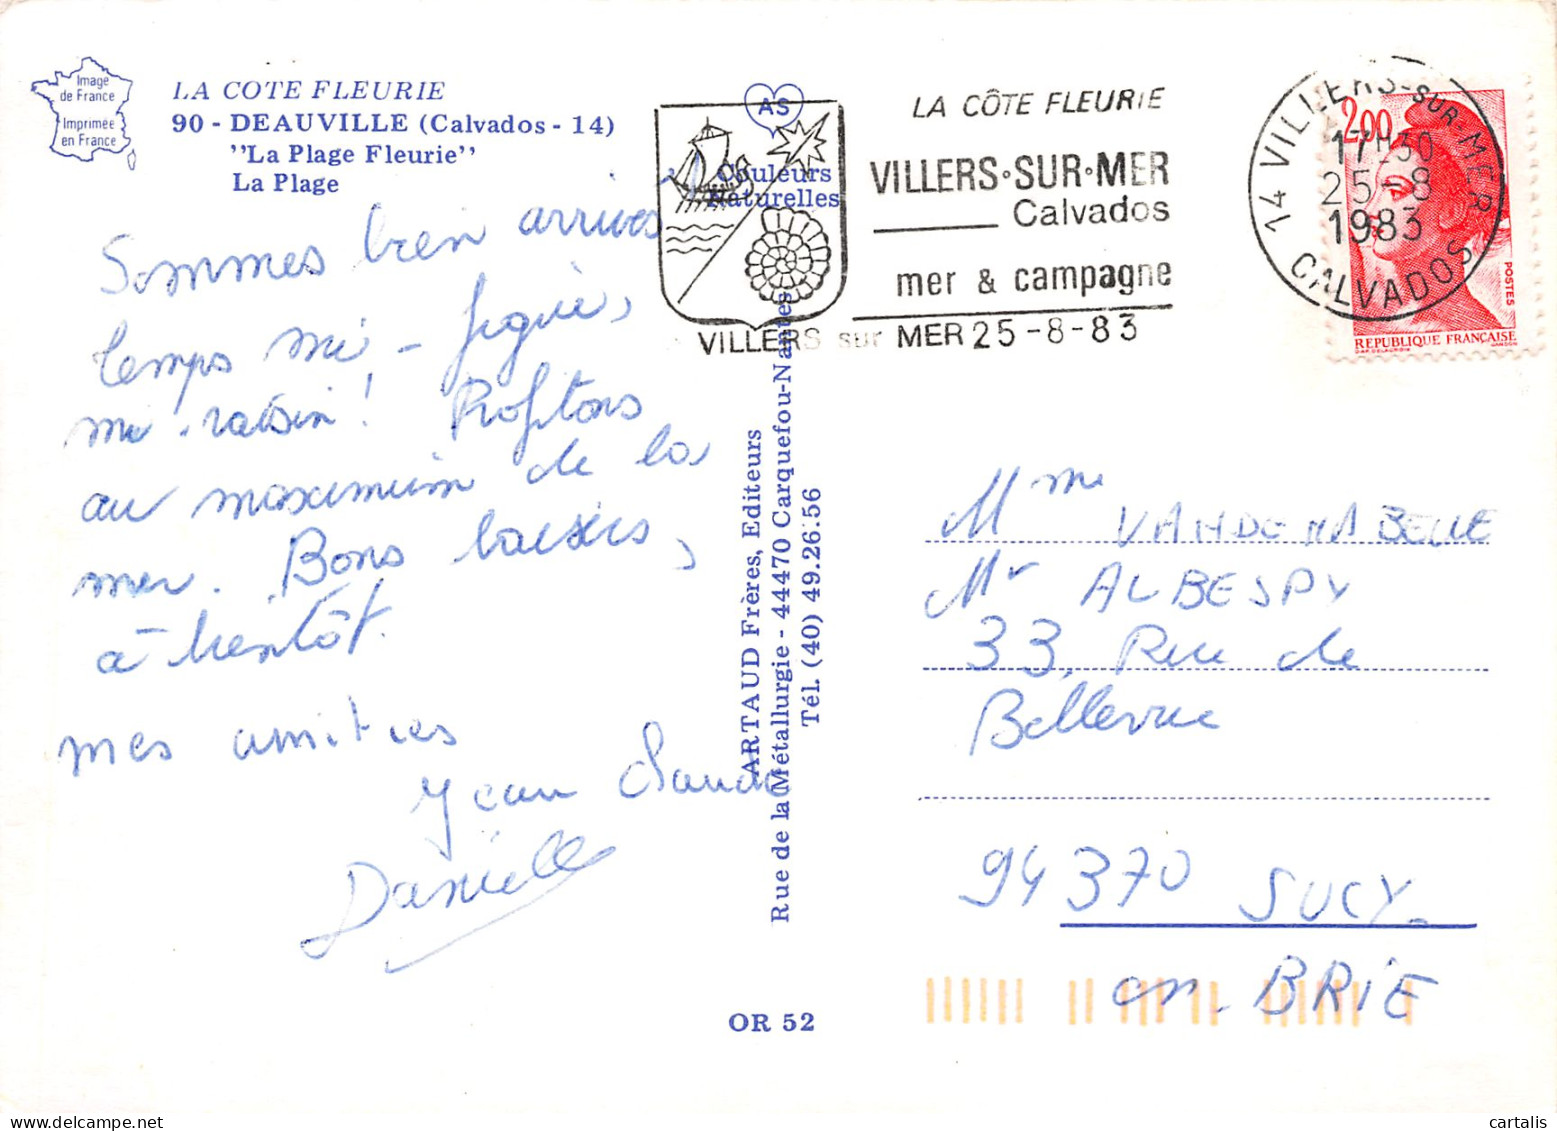 Image
de France
Imprimée
en France
LA COTE FLEURIE
90 - DEAUVILLE (Calvados - 14)
"La Plage Fleurie"
La Plage
Sommes bien arrivés
temps mi-figue,
mi-raisin! Profitons
au maximum de la
mer. Bons baisers,
à bientôt.
mes amitiés
Jean Claude
Danielle
AS
Couleurs
Naturelles
ARTAUD Frères, Editeurs
Rue de la Métallurgie - 44470 Carquefou-Nantes
Tél. (40) 49.26.56
OR 52
LA CÔTE FLEURIE
VILLERS·SUR·MER
Calvados
mer & campagne
VILLERS sur MER 25-8-83
14 VILLERS-SUR-MER
17H30
25-8
1983
CALVADOS
2,00
POSTES
REPUBLIQUE FRANÇAISE
Mme VANDENABELLE
Mr ALBESPY
33, Rue de
Bellevue
94370 SUCY-
en-BRIE
cartalis